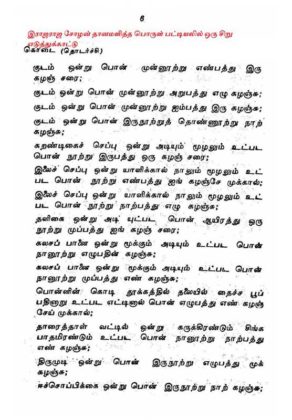 6
இராஜராஜ சோழன் தானமளித்த பொருள் பட்டியலில் ஒரு சிறு
எடுத்துக்காட்டு
கொடை (தொடர்ச்சி)
குடம் ஒன்று பொன் முன்னூற்று எண்பத்து இரு
கழஞ் சரை;
குடம் ஒன்று பொன் முன்னூற்று அறுபத்து எழு கழஞ்சு;
குடம் ஒன்று பொன் முன்னூற்று ஐம்பத்து இரு கழஞ்சு;
குடம் ஒன்று பொன் இருநூற்றுத் தொண்ணூற்று நாற்
கழஞ்சு;
கறண்டிகைச் செப்பு ஒன்று அடியும் மூழலும் உட்பட
பொன் நூற்று இருபத்து ஒரு கழஞ் சரை;
இலைச் செப்பு ஒன்று யாளிக்கால் நாலும் மூழலும் உட்
பட பொன் நூற்று எண்பத்து ஐங் கழஞ்சே முக்கால்;
இலைச் செப்பு ஒன்று யாளிக்கால் நாலும் மூழலும் உட்
பட பொன் நூற்று நாற்பத்து எழு கழஞ்சு;
தளிகை ஒன்று அடி யுட்பட பொன் ஆயிரத்து ஒரு
நூற்று முப்பத்து ஐங் கழஞ் சரை;
கலசப் பானை ஒன்று மூக்கும் அடியும் உட்பட பொன்
நானூற்று எழுபதின் கழஞ்சு;
கலசப் பானை ஒன்று மூக்கும் அடியும் உட்பட பொன்
நானூற்று முப்பத்து எண் கழஞ்சு;
பொன்னின் கொடி தூக்கத்தில் தலையில் தைச்ச பூப்
பதினாறு உட்பட எட்டினால் பொன் எழுபத்து எண் கழஞ்
சேய் முக்கால்;
தாரைத்தாள் வட்டில் ஒன்று கருக்கிரண்டும் சிங்க
பாதமிரண்டும் உட்பட பொன் நானூற்று நாற்பத்து
எண் கழஞ்சு;
திருமுடி ஒன்று பொன் இருநூற்று எழுபத்து முக்
கழஞ்சு;
ஈச்சோப்பிக்கை ஒன்று பொன் இருநூற்று நாற் கழஞ்சு;